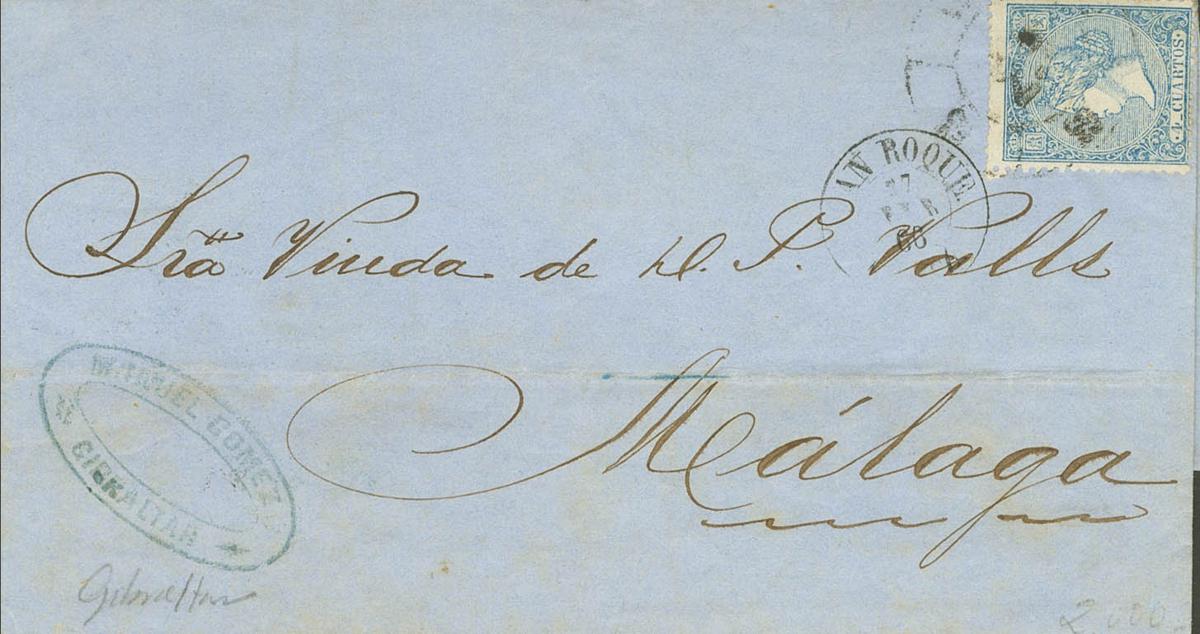 4 CUARTOS
SAN ROQUE
27
ENE
66
Sra Viuda de D. P. Valls
Málaga
MANUEL GOMEZ
GIBRALTAR
Gibraltar
2000